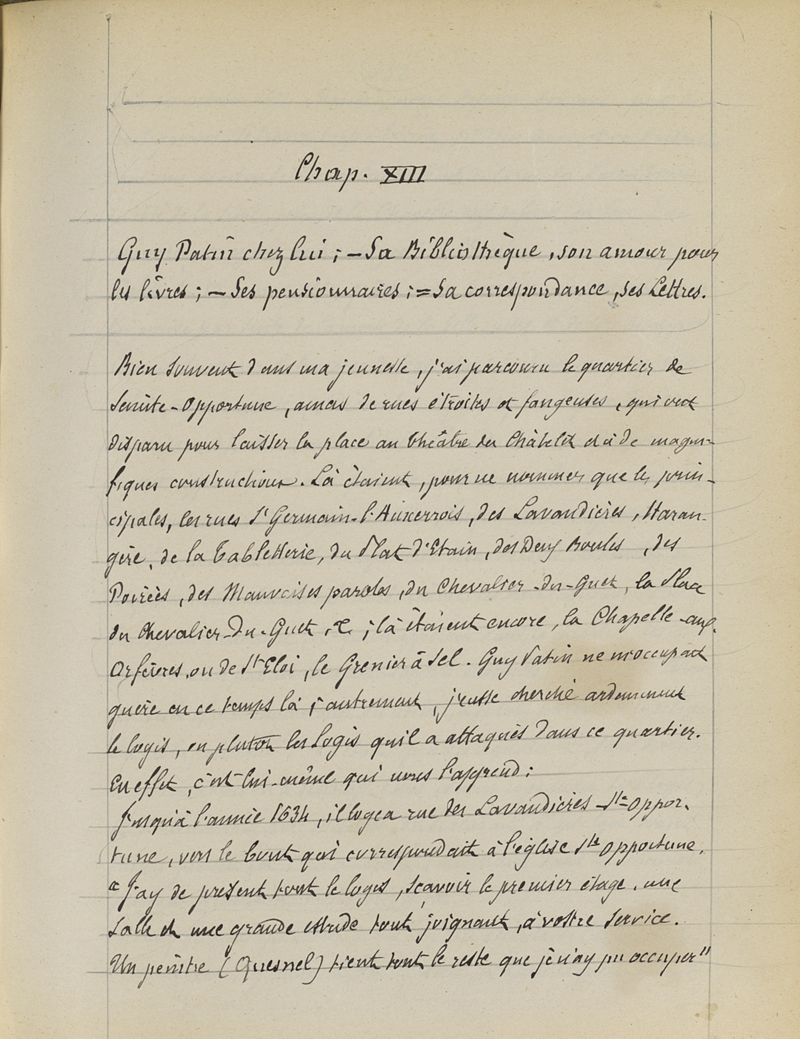 Chap. XIII
Guy Patin chez lui ; – Sa Bibliothèque, son amour pour
les livres ; – Ses pensionnaires ; = Sa correspondance, ses Lettres.
Bien souvent dans ma jeunesse, j'ai parcouru le quartier de
Sainte-Opportune, amas de rues étroites et fangeuses, qui ont
disparu pour laisser la place au théâtre du Châtelet et à de magni-
fiques constructions. Là étaient, pour ne nommer que les prin-
cipales, les rues St Germain-l'Auxerrois, des Lavandières, Haran-
gère, de la Tabletterie, du Plat d'Etain, des Deux Boules, des
Poirées, des Mauvaises paroles, du Chevalier-du-Guet, la Place
du Chevalier-Du-Guet, &, ; là étaient encore, la Chapelle-aux-
Orfèvres, ou de St Eloi, le Grenier à Sel. Guy Patin ne m'occupait
guère en ce temps là ; autrement, j'eusse cherché ardemment
le logis, ou plutôt les logis qu'il a dans ce quartier.
En effet, c'est lui-même qui nous l'apprend :
Jusqu'à l'année 1634, il logea rue des Lavandières-Ste-Oppor-
tune, vers le bout qui correspondait à l'église Ste Opportune.
"J'ay de présent tout le loges, scavoir le premier étage, une
salle et une grande estude tout joignant, à vostre service.
Un peintre (Quesnel) tient tout le reste que je n'ay pu occuper"